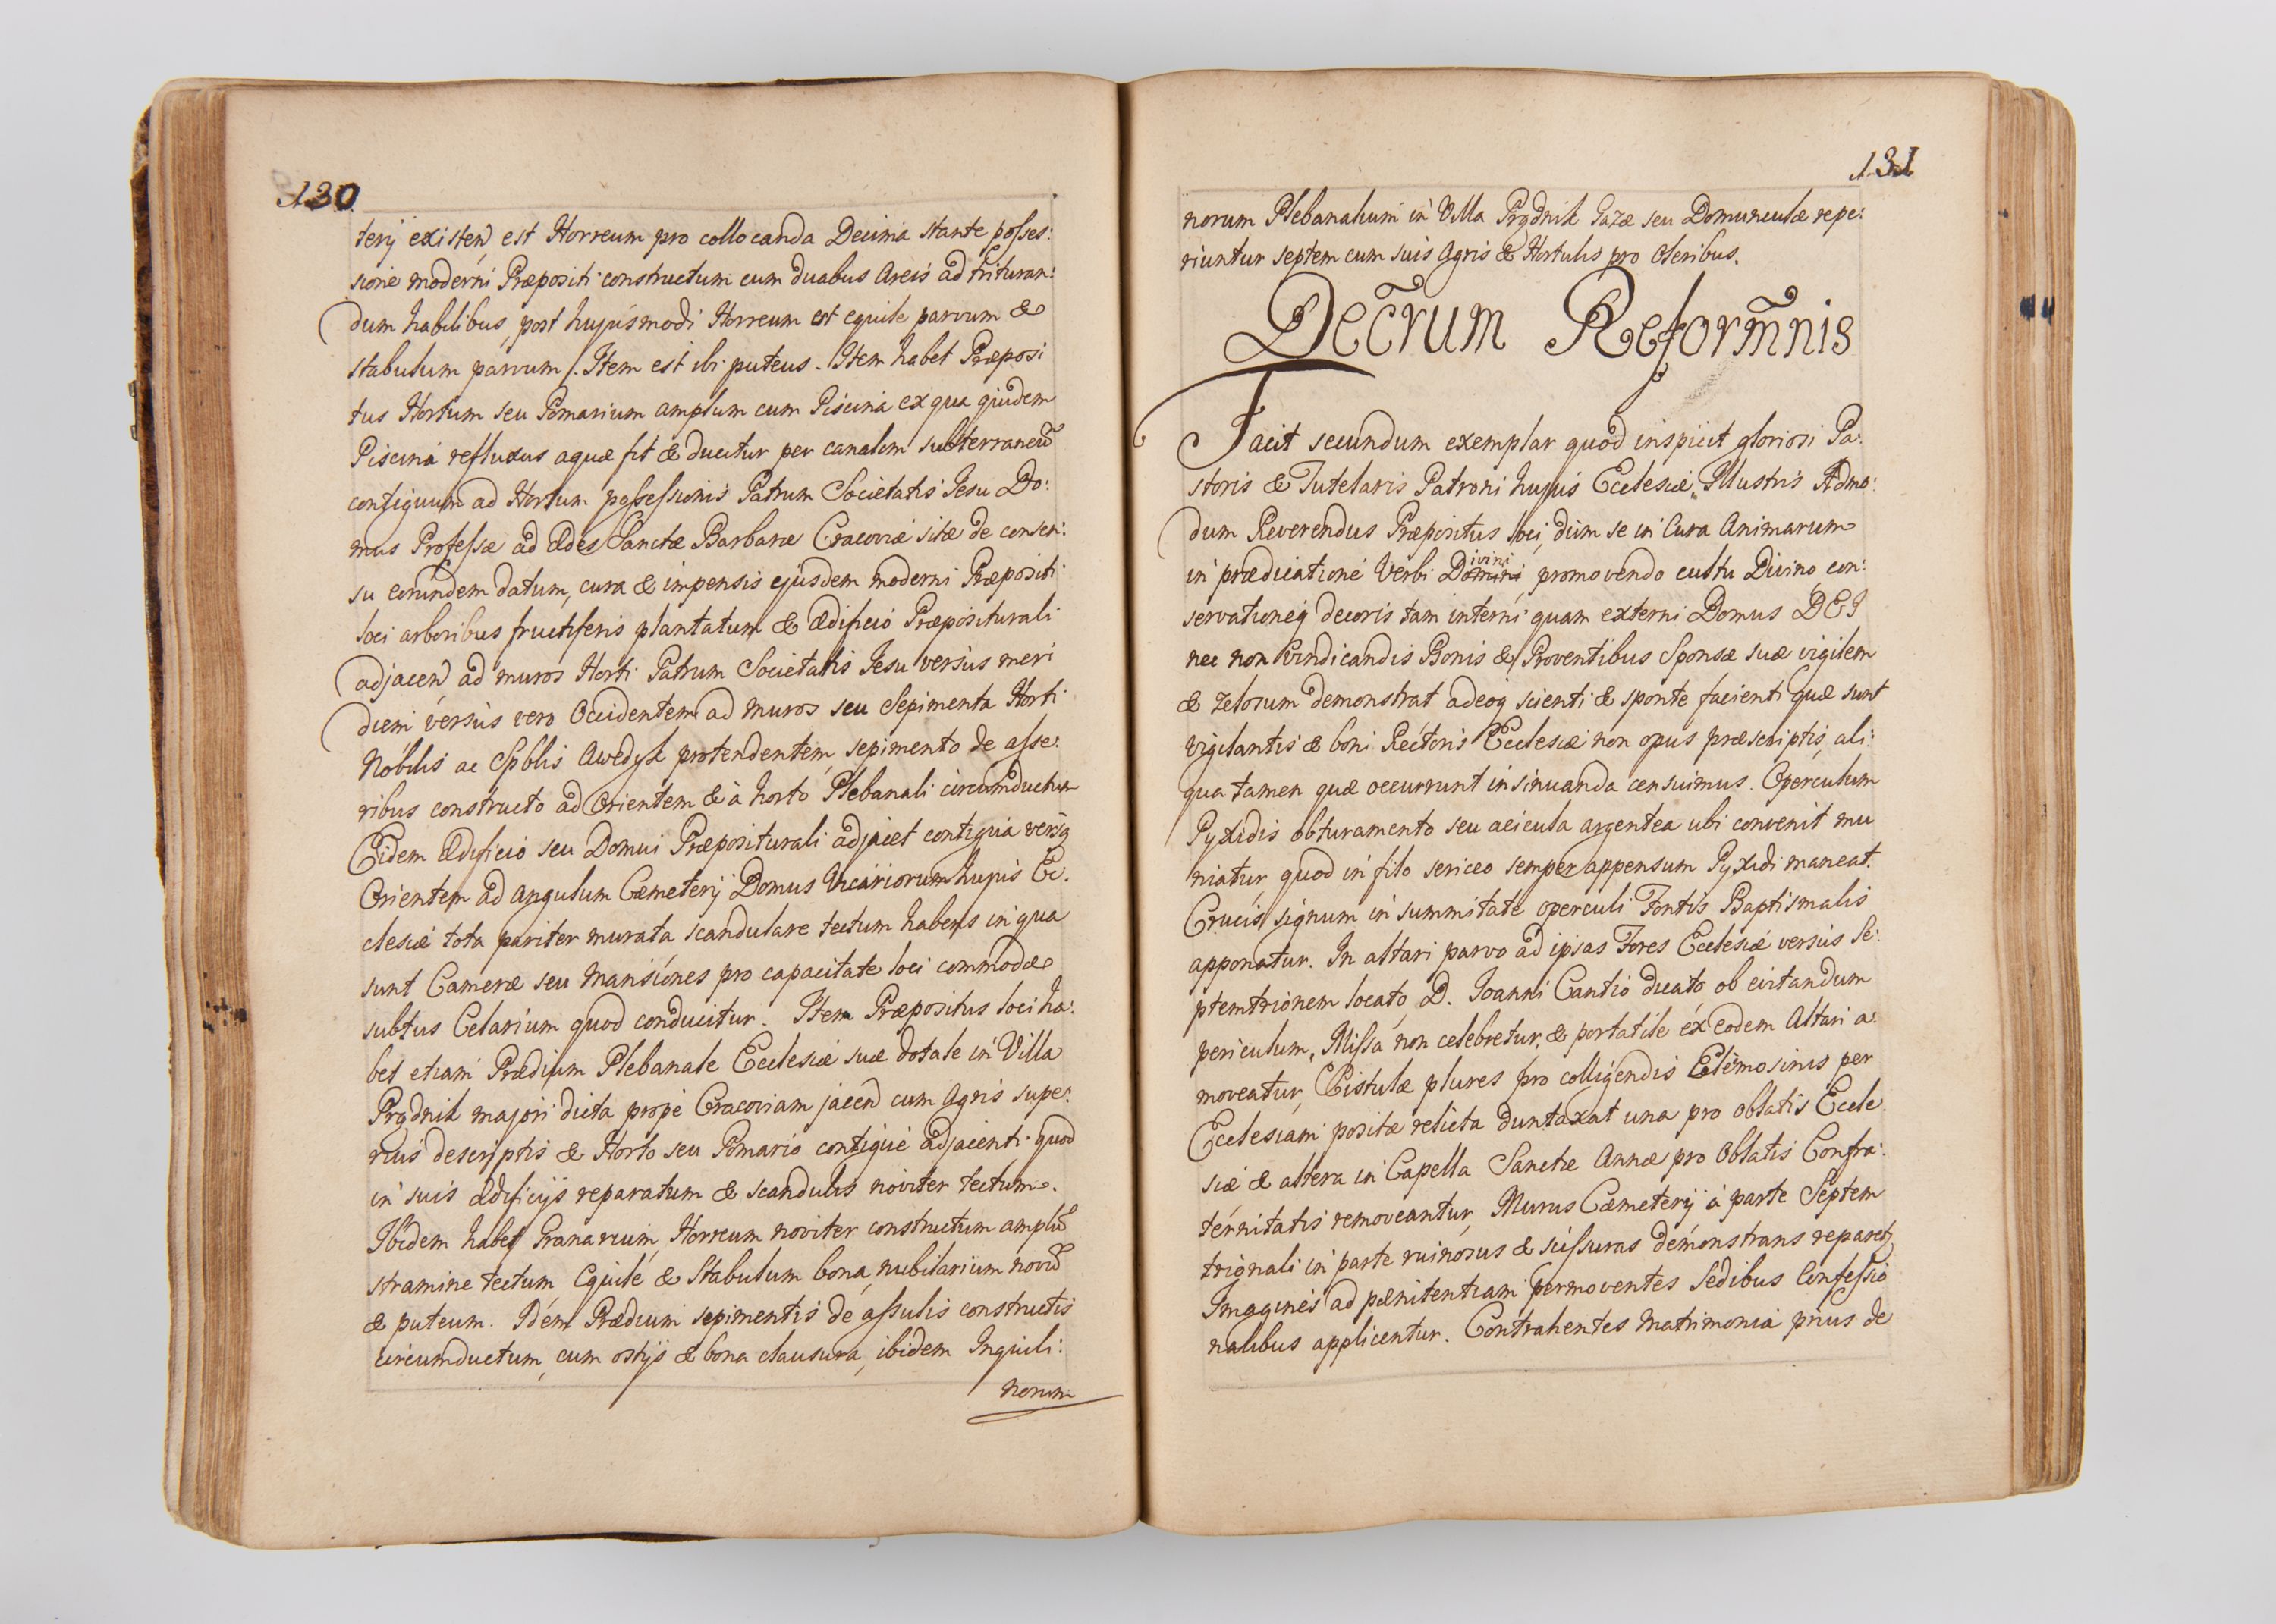 130
terÿ existen est Horreum pro collocanda Decima stante posses:
sione moderni Præpositi constructum cum duabus Areis ad trituran:
dum habilibus, post hujusmodi Horreum est equile parvum &
stabulum parvum /. Item est ibi puteus. Item habet Præposi
tus Hortum seu Pomarium amplum cum Piscina ex qua quidem
Piscina refluxus aquæ fit & ducitur per canalem subterraneũ
contiguum ad Hortum possessionis Patrum Societatis Iesu Do:
mus Professæ ad Ædes Sanctæ Barbaræ Cracoviæ sitæ de consen:
su eorundem datum, cura & impensis ejusdem moderni Præpositi
loci arboribus fructiferis plantatum & Ædificio Præpositurali
adjacen ad muros Horti Patrum Societatis Iesu versus meri
diem versus vero Occidentem ad muros seu Sepimenta Horti
Nobilis ac Spblis Awedyk protendentem, sepimento de asse:
ribus constructo ad Orientem & à horto Plebanali circumductum
Eidem Ædificio seu Domui Præpositurali adjacet contigua versq
Orientem ad angulum Cæmeterÿ Domus Vicariorum hujus Ec.
clesiæ tota pariter murata scandulare tectum habens in qua
sunt Cameræ seu Mansiones pro capacitate loci commodæ
subtus Celarium quod conducitur. Item Præpositus loci ha:
bet etiam Prædium Plebanale Ecclesiæ suæ dotale in Villa
Prądnik majori dicta prope Cracoviam jacen cum Agris supe:
rius descriptis & Horto seu Pomario contigue adjacenti quod
in suis Ædificÿs reparatum & scandulis noviter tectum.
Ibidem habet Granarium, Horreum noviter constructum amplũ
stramine tectum, Equile & Stabulum bona, nubilarium novũ
& puteum. Idem Prædium sepimentis de assulis constructis
circumductum, cum ostÿs & bona clausura, ibidem Inquili:
norum
131
norum Plebanalium in Villa Prądnik Gazæ seu Domunculæ repe:
riuntur septem cum suis Agris & Hortulis pro Oleribus.
Decr̃um Reform̃nis
Facit secundum exemplar quod inspicit gloriosi Pa:
storis & Tutelaris Patroni hujus Ecclesiæ, Illustris Admo:
dum Reverendus Præpositus loci, dum se in Cura Animarum
in prædicatione Verbi Domini ivini promovendo cultu Divino con:
servationeq decoris tam interni quam externi Domus DEI
nec non vindicandis Bonis & Proventibus Sponsæ suæ vigilem
& zelosum demonstrat adeoq scienti & sponte facienti quæ sunt
vigilantis & boni Rectoris Ecclesiæ non opus præscriptis, ali:
qua tamen quæ occurrunt insinuanda censuimus. Operculum
Pyxidis obturamento seu acicula argentea ubi convenit mu
niatur, quod in filo sericeo semper appensum Pyxidi maneat.
Crucis signum in summitate operculi Fontis Baptismalis
apponatur. In altari parvo ad ipsas Fores Ecclesiæ versus Se:
ptemtrionem locato, D. Ioanni Cantio dicato ob evitandum
periculum, Missa non celebretur, & portatile ex eodem Altari a:
moveatur, Cistulæ plures pro colligendis Elemosinis per
Ecclesiam positæ relicta duntaxat una pro oblatis Eccle.
siæ & altera in Capella Sanctæ Annæ pro Oblatis Confra:
ternitatis removeantur, Murus Cæmeterÿ à parte Septem
trionali in parte ruinosus & scissuras demonstrans reparetz
Imagines ad pænitentiam permoventes Sedibus Confessio
nalibus applicentur. Contrahentes Matrimonia prius de